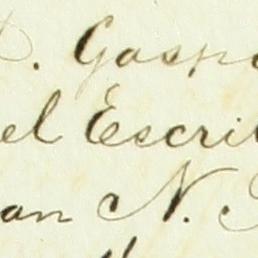 . Gaspa
el Escri
an N.